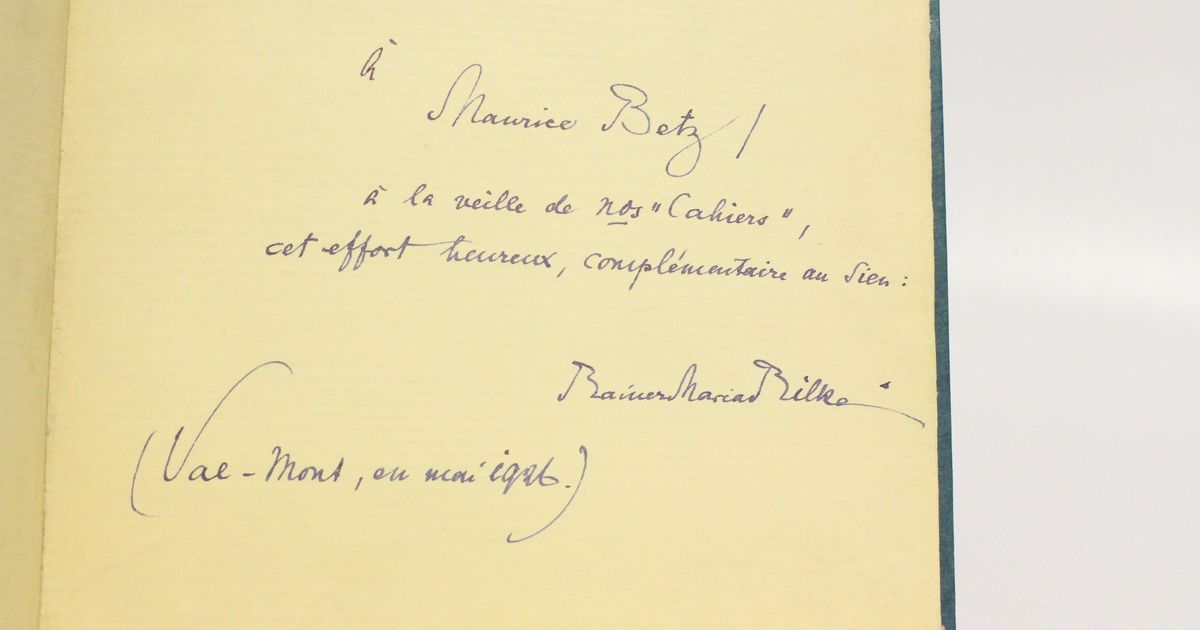 à
Maurice Betz /
à la veille de nos "Cahiers",
cet effort heureux, complémentaire au sien :
Rainer Maria Rilke
(Val-Mont, en mai 1926.)